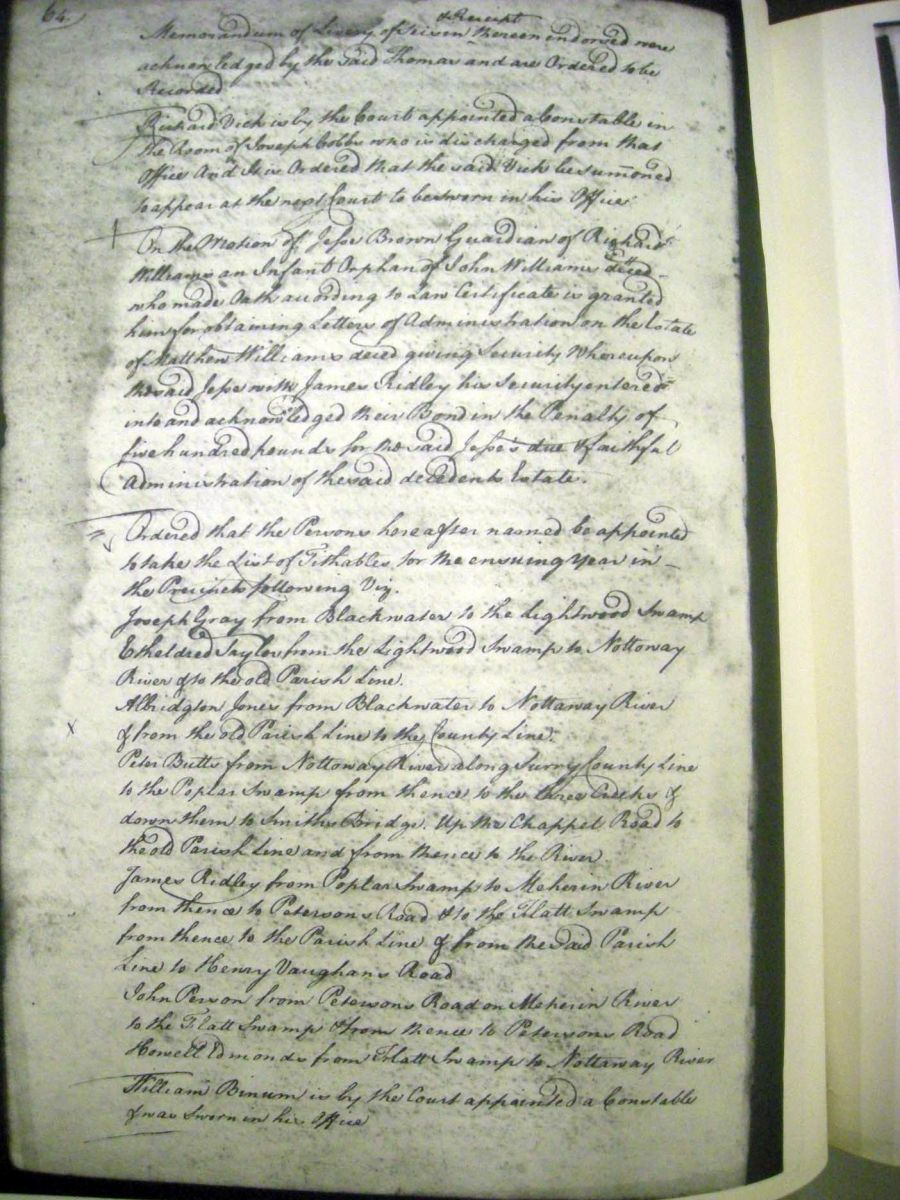 64.
& Receipt
Memorandum of Livery of Seisin thereon endorsed were
acknowledged by the said Thomas and are Ordered to be
Recorded
Richard Vick is by the Court appointed a Constable in
the Room of Joseph Cobbs who is discharged from that
Office And It is Ordered that the said Vick be summoned
to appear at the next Court to be sworn in his Office
On the Motion of Jesse Brown Guardian of Richard
Williams an Infant Orphan of John Williams deced
who made Oath according to Law Certificate is granted
him for obtaining Letters of Administration on the Estate
of Matthew Williams deced giving Security Whereupon
the said Jesse with James Ridley his Security entered
into and acknowledged their Bond in the Penalty of
five hundred pounds for the said Jesse's due & faithful
Administration of the said decedents Estate.
Ordered that the Persons hereafter named be appointed
to take the List of Tithables for the ensuing Year in
the Precincts following Viz.
Joseph Gray from Blackwater to the Lightwood Swamp
Etheldred Taylor from the Lightwood Swamp to Nottoway
River & to the old Parish Line.
Albridgton Jones from Blackwater to Nottaway River
& from the old Parish Line to the County Line.
Peter Butts from Nottoway River along Surry County Line
to the Poplar Swamp from thence to the three Creeks &
down them to Smiths Bridge. Up the Chappel Road to
the old Parish Line and from thence to the River
James Ridley from Poplar Swamp to Meherin River
from thence to Petersons Road & to the Flatt Swamp
from thence to the Parish Line & from the said Parish
Line to Henry Vaughans Road
John Person from Petersons Road on Meherin River
to the Flatt Swamp & from thence to Petersons Road
Howell Edmonds from Flatt Swamp to Nottaway River
William Binum is by the Court appointed a Constable
& was Sworn in his Office